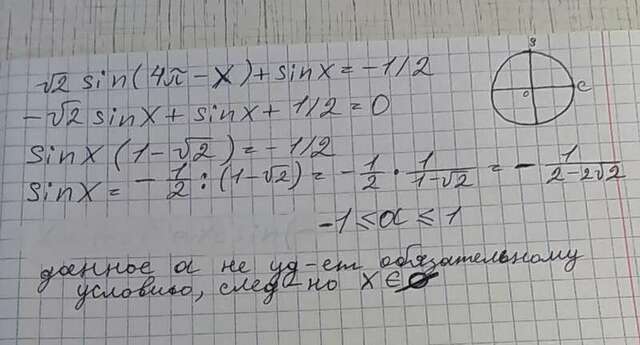 √2 sin(4π-x)+sinx=-1/2
-√2 sinx+sinx+1/2=0
sinx(1-√2)=-1/2
sinx= -1/2:(1-√2)= -1/2 · 1/1-√2 = - 1/2-2√2
-1≤a≤1
данное a не уд-ет обязательному
условию, след-но x∈∅
s
o
c